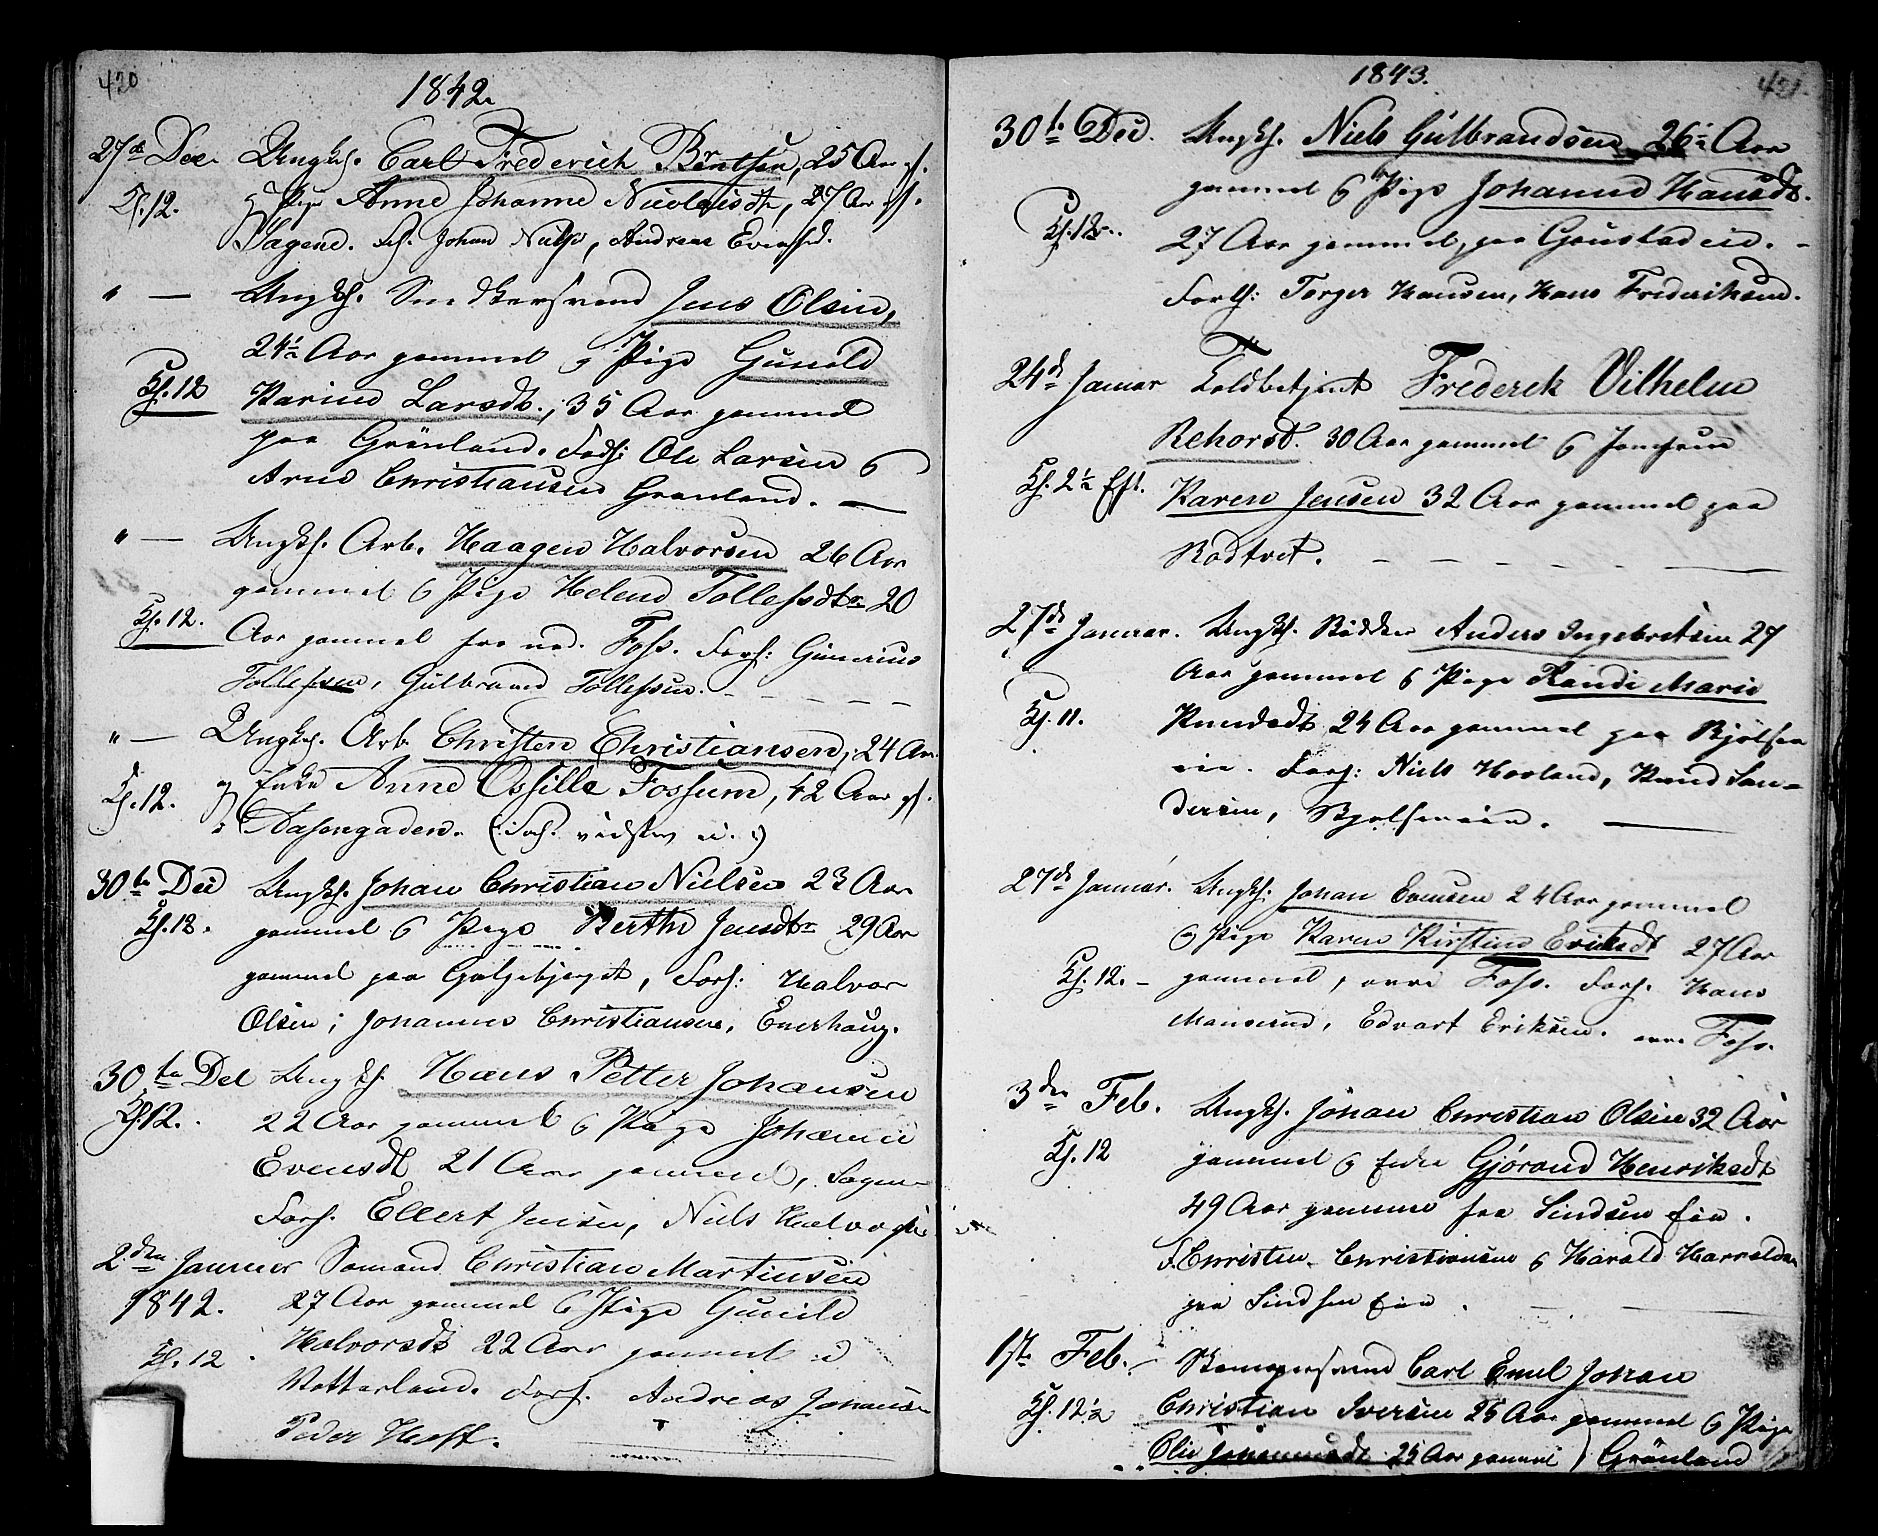 420
1842.
27de Dec. Ungk. Carl Frederich Berntsen, 25 Aar gl.
Kl. 12. og Pige Anne Johanne Nicolaisdtr, 27 Aar gl.
Sagene. Johan Andreas
" — Ungk. Snedkersvend Jens Olsen,
24½ Aar gammel og Pige Gunild
Kl. 12 Karine Larsdtr., 35 Aar gammel
paa Grønland. Ole Larsen og
Arne Christiansen Grønland. —
" — Ungk. Arb. Haagen Halvorsen 26 Aar
gammel og Pige Helene Tollefsdtr 20
Kl. 12. Aar gammel fra Foss. Forl: Gunerius
Tollefsen, Gulbrand Tollefsen.
" — Ungk. Arb. Christen Christiansen, 24 Aar
Kl. 12. og Enke Anne Fossum, 42 Aar gl.
i Aasengaden. (
30te Dec Ungk. Johan Christian Nielsen 23 Aar
Kl. 12. gammel og Pige Berthe Jensdtr 29 Aar
gammel paa Galgebjerget, Forl: Halvor
Olsen; Johannes Christiansen, Enerhaug.
30te Dec Ungk. Hans Petter Johansen
Kl. 12. 22 Aar gammel og Pige Johanne
Evensdt 21 Aar gammel, Sagene
Forl. Ellert Jensen, Niels
2den Januar Sømand Christian Martinsen
1842. 27 Aar gammel og Pige Gunild
Kl. 12. Halvorsdt 22 Aar gammel i
Vatterland. Forl. Andreas Johansen
Peder
1843.
421.
30te Dec. Ungk. Niels Gulbrandsen 26 Aar
gammel og Pige Johanne Hansdt.
Kl. 12 27 Aar gammel, paa Gaustadeie. —
Forl: Torger Hansen, Hans Frederiksen.
24de Januar Toldbetjent Frederek Vilhelm
Rehorst. 30 Aar gammel og Jomfrue
Kl. 2½ Eft. Karen Jensen 32 Aar gammel paa
Rødtvet.
27de Januar. Ungk. Bødker Anders Ingebretsen 27
Aar gammel og Pige Randi Marie
Kl. 11. Knudsdt 24 Aar gammel paa Bjølsen
eie. Forl: Niels Hovland, Knud San-
dersen, Bjølseneie.
27de Januar. Ungk. Johan Evensen 24 Aar gammel
og Pige Karen Kirstine Eriksdt 27 Aar
Kl. 12. – gammel, øvre Foss. Forl. Hans
Manserud, Edvart Eriksen. øvre Foss.
3den Feb. Ungk. Johan Christian Olsen 32 Aar
Kl. 12 gammel og Enke Gjørand Henriksdt
49 Aar gammel fra Sindsen Eie.
F. Christen Christiansen og Harald Harralds
paa Sindsen Eie.
1ste Feb. Carl Emil Johan
Kl. 12½ Christian Iversen 25 Aar gammel og Pige
Olie 25 Aar gammel Grønland